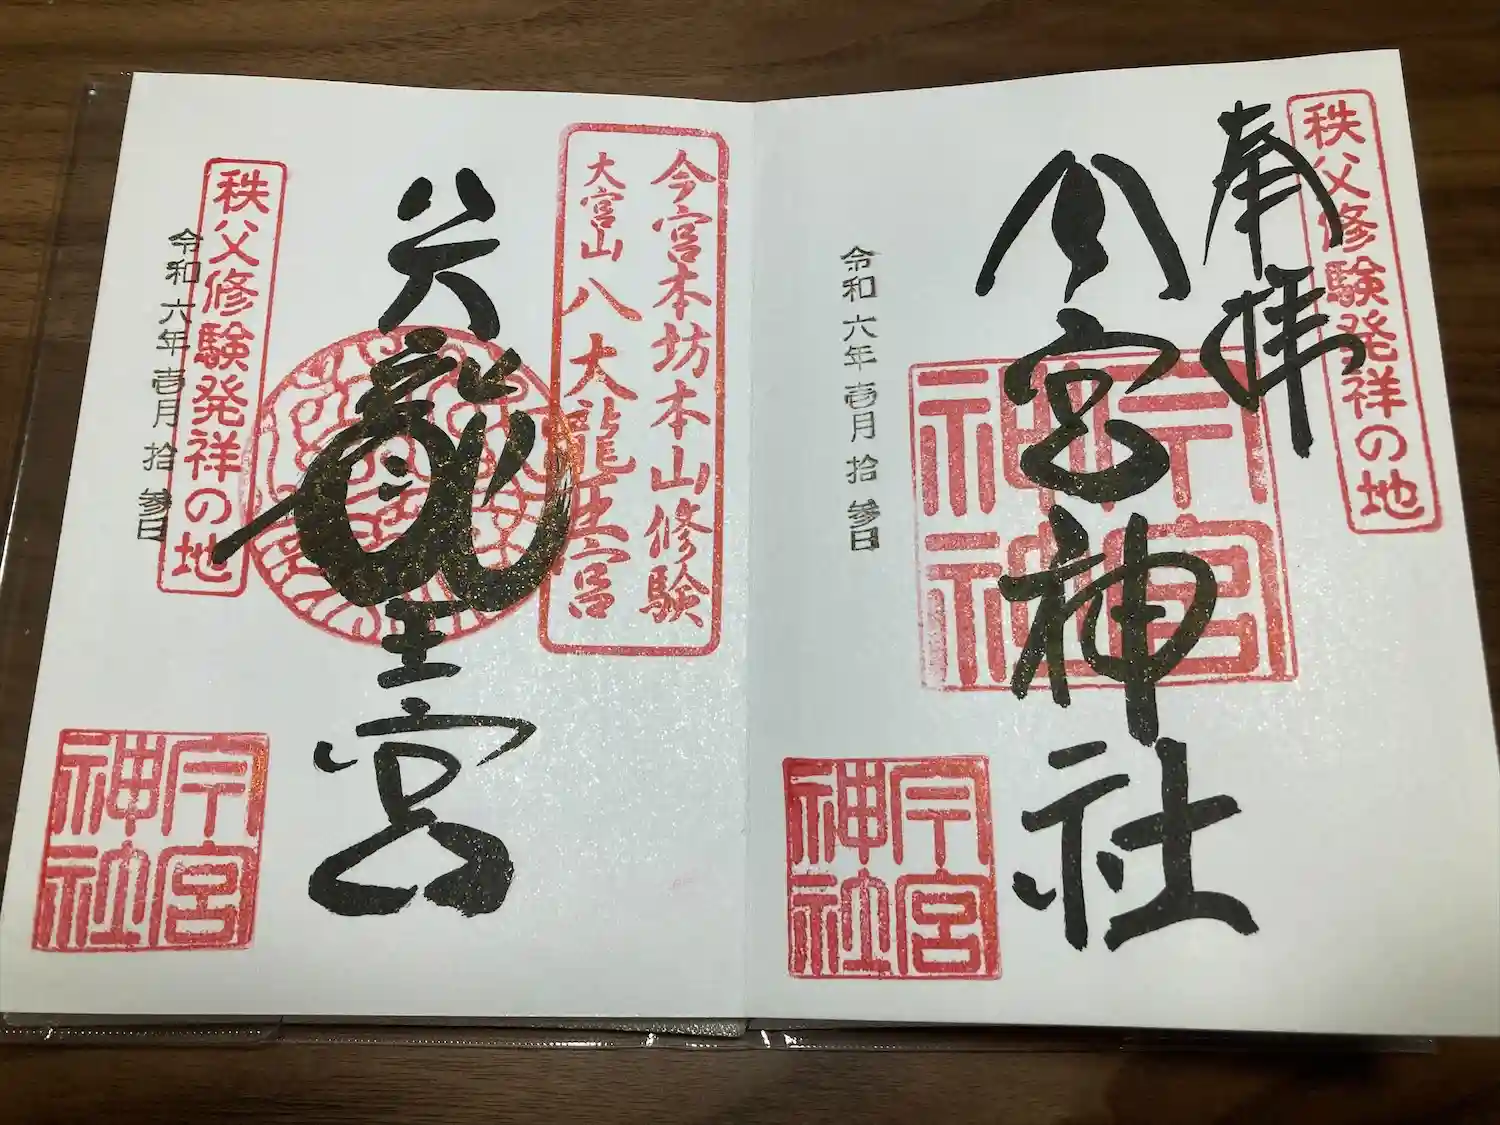 秩父修験発祥の地
奉拝
今宮神社
今宮神社
令和六年壱月拾参日
今宮神社
今宮本坊本山修験
大宮山八大龍王宮
八大龍王宮
秩父修験発祥の地
令和六年壱月拾参日
今宮神社